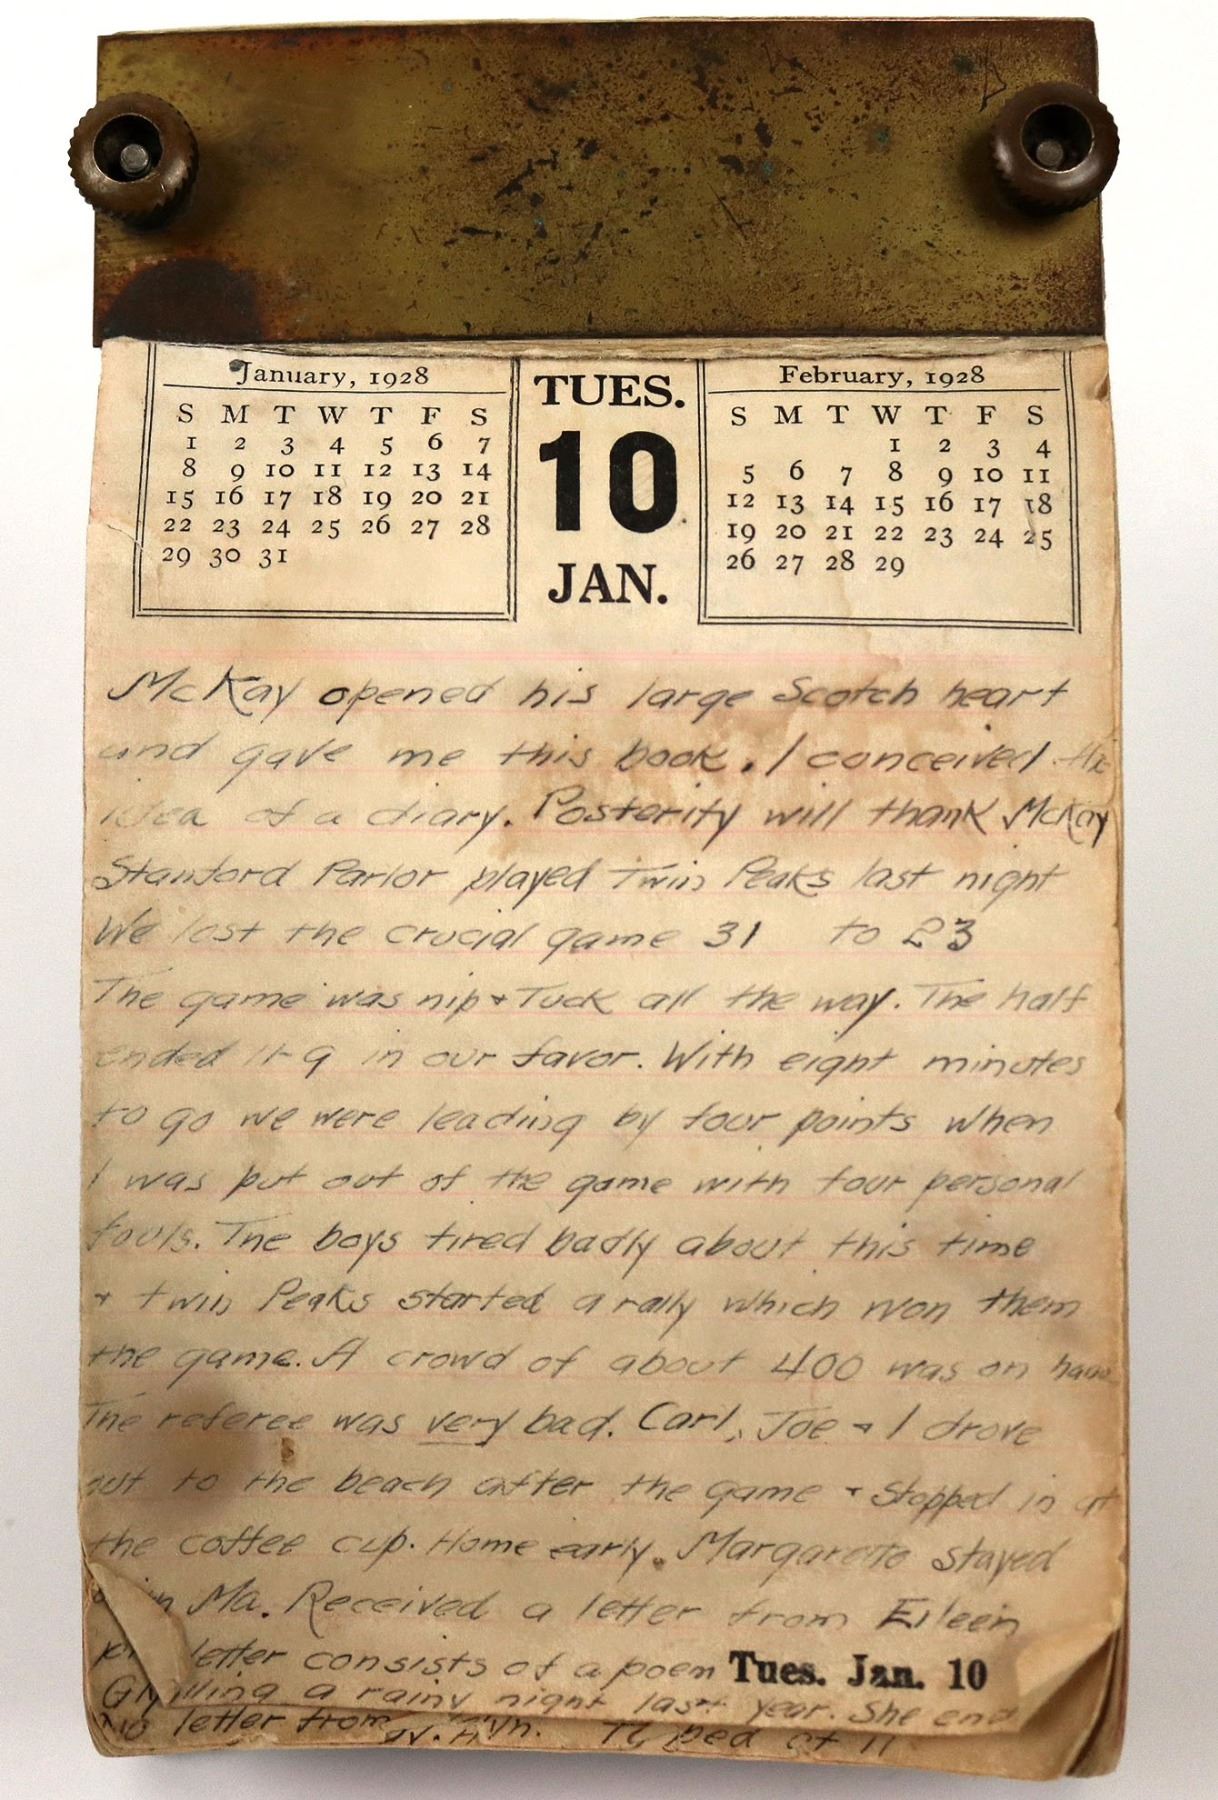 January, 1928
S M T W T F S
1 2 3 4 5 6 7
8 9 10 11 12 13 14
15 16 17 18 19 20 21
22 23 24 25 26 27 28
29 30 31
TUES.
10
JAN.
February, 1928
S M T W T F S
1 2 3 4
5 6 7 8 9 10 11
12 13 14 15 16 17 18
19 20 21 22 23 24 25
26 27 28 29
McKay opened his large Scotch heart
and gave me this book. I conceived the
idea of a diary. Posterity will thank McKay
Stanford Parlor played Twin Peaks last night
We lost the crucial game 31 to 23
The game was nip + Tuck all the way. The half
ended 11-9 in our favor. With eight minutes
to go we were leading by four points when
I was put out of the game with four personal
fouls. The boys tired badly about this time
+ twin Peaks started a rally which won them
the game. A crowd of about 400 was on hand
The referee was very bad. Carl, Joe + I drove
out to the beach after the game + Stopped in at
the coffee cup. Home early. Margarette stayed
Ma. Received a letter from Eileen
letter consists of a poem Tues. Jan. 10
a rainy night last year. She
letter from bed at 11